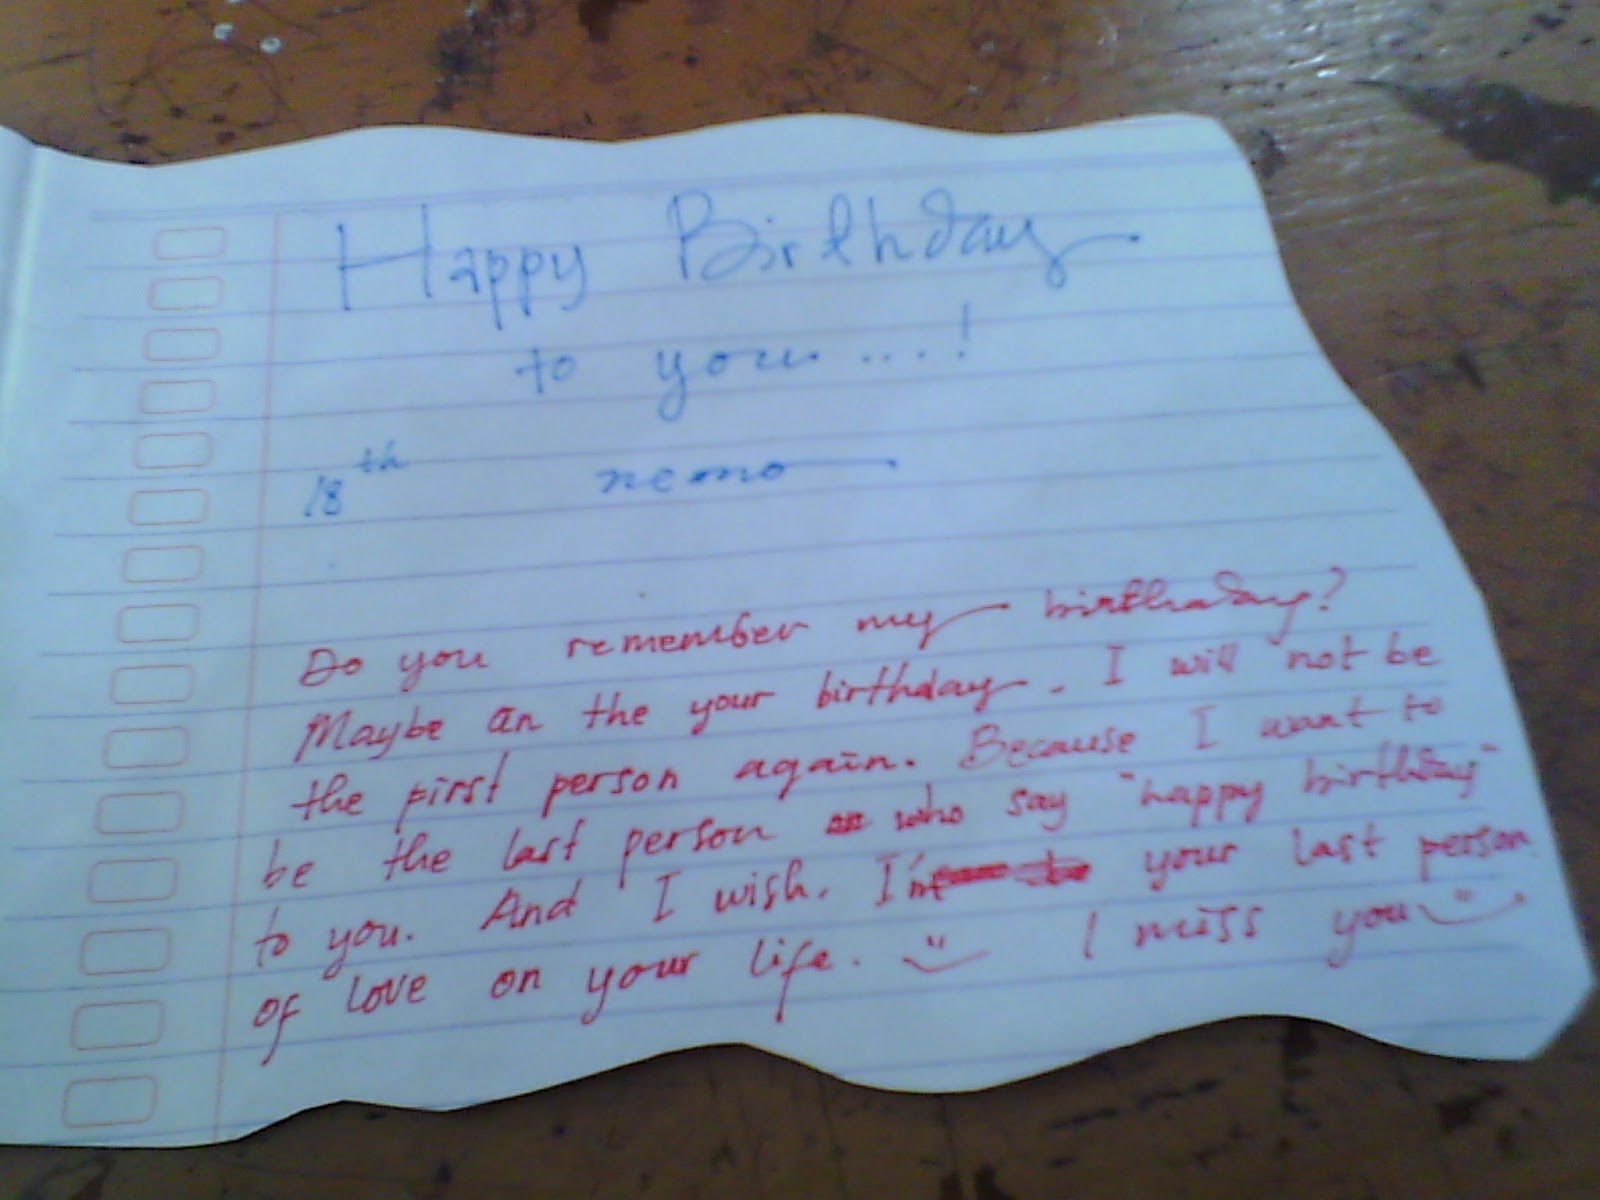 Happy Birthday
to you....!
18th nemo
Do you remember my birthday?
Maybe an the your birthday. I will not be
the first person again. Because I want to
be the last person who say "happy birthday"
to you. And I wish. I'm your last person
of love on your life. I miss you